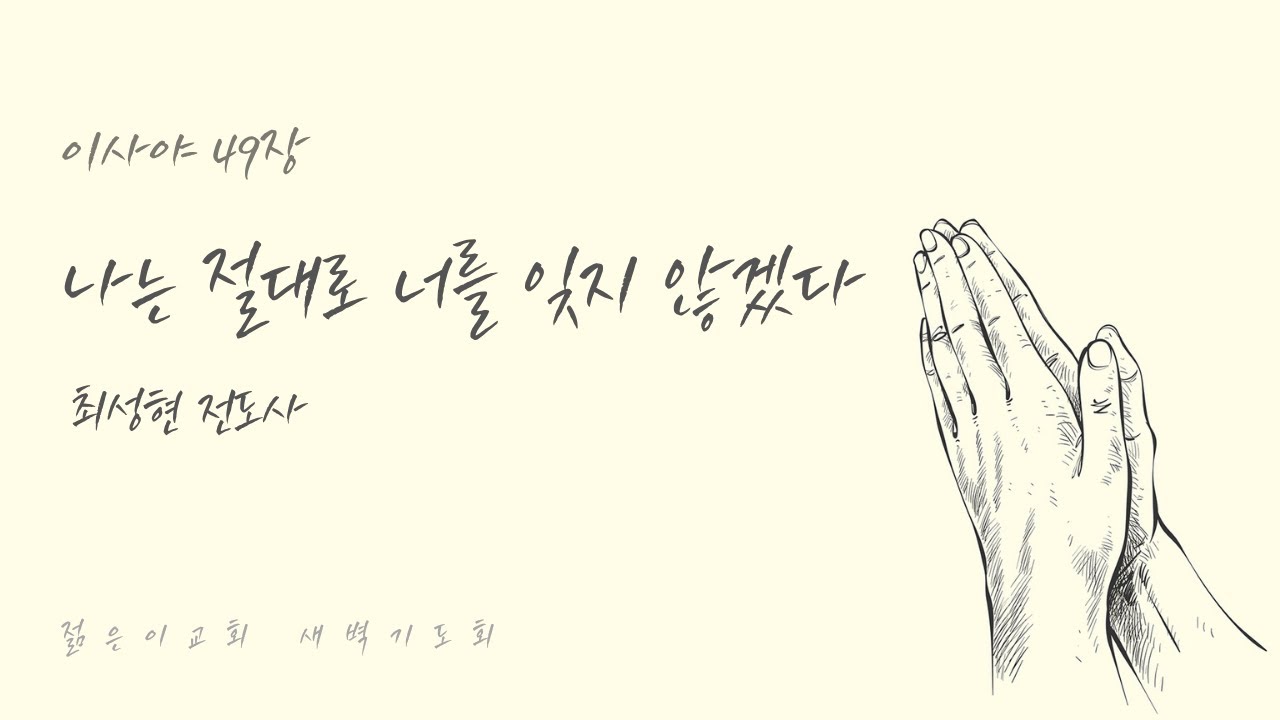 이사야 49장
나는 절대로 너를 잊지 않겠다
최성현 전도사
젊은이교회 새벽기도회